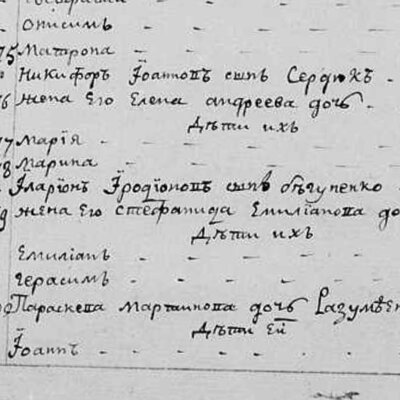 Онисимъ
75 Матрона
Никифоръ Їоанновъ сынъ Сердюкъ
76 жена Его Елена андреева дочь
Дѣти ихъ
77 Марїя
78 Марина
Їларїонъ Їродїоновъ сынъ бѣгуненко
79 жена Его стефанида Емилїанова до
Дѣти ихъ
Емилїанъ
герасимъ
Параскева Мартинова дочь Разумѣен
Дѣти Ей
Їоаннъ